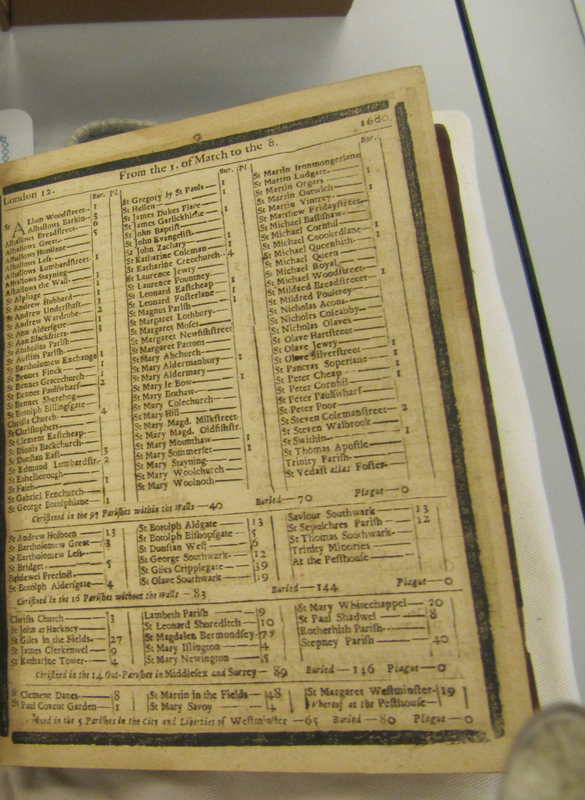 London 12. From the 1. of March to the 8. 1680.
Bur. Pl.
St Alban Woodstreet 1
Alhallows Barkin 3
Alhallows Breadstreet 6
Alhallows Great 5
Alhallows Honilane
Alhallows Less
Alhallows Lumbardstreet 1
Alhallows Stayning
Alhallows the Wall 1
St Alphage 1
St Andrew Hubbard 1
St Andrew Undershaft 1
St Andrew Wardrobe 2
St Ann Aldersgate
St Ann Blackfriers 3
St Antholins Parish
St Austins Parish
St Bartholomew Exchange 1
St Bennet Finck
St Bennet Gracechurch 1
St Bennet Paulswharf 2
St Bennet Sherehog
St Botolph Billingsgate
Christs Church 4
St Christophers
St Clement Eastcheap
St Dionis Backchurch
St Dunstan East 3
St Edmund Lumbardstr. 2
St Ethelborough
St Faith 1
St Gabriel Fenchurch
St George Botolphlane 1
Bur. Pl.
St Gregory by St Pauls 1
St Hellen
St James Dukes Place 1
St James Garlickhithe 1
St John Baptist
St John Evangelist
St John Zachary 1
St Katharine Coleman 1
St Katharine Creechurch 4
St Laurence Jewry
St Laurence Pountney
St Leonard Eastcheap 1
St Leonard Fosterlane 1
St Magnus Parish
St Margaret Lothbury
St Margaret Moses
St Margaret Newfishstreet
St Margaret Pattons
St Mary Abchurch
St Mary Aldermanbury 1
St Mary Aldermary 1
St Mary le Bow
St Mary Bothaw
St Mary Colechurch
St Mary Hill
St Mary Magd. Milkstreet
St Mary Magd. Oldfishstr.
St Mary Mounthaw
St Mary Sommerset 1
St Mary Stayning
St Mary Woolchurch
St Mary Woolnoth
Bur.
St Martin Ironmongerlane
St Martin Ludgate 1
St Martin Orgars
St Martin Outwich 1
St Martin Vintrey
St Matthew Fridaystreet
St Michael Bassishaw
St Michael Cornhil
St Michael Crookedlane 1
St Michael Queenhith 1
St Michael Quern
St Michael Royal
St Michael Woodstreet
St Mildred Breadstreet 1
St Mildred Poultrey
St Nicholas Acons
St Nicholas Coleabby
St Nicholas Olaves
St Olave Hartstreet
St Olave Jewry
St Olave Silverstreet 1
St Pancras Soperlane 1
St Peter Cheap 1
St Peter Cornhil
St Peter Paulswharf
St Peter Poor
St Steven Colemanstreet 2
St Steven Walbrook
St Swithin 1
St Thomas Apostle
Trinity Parish
St Vedast alias Foster
Christned in the 97 Parishes within the Walls — 40 Buried — 70 Plague — 0
St Andrew Holborn 13
St Bartholomew Great 3
St Bartholomew Less
St Bridget 5
Bridewel Precinct
St Botolph Aldersgate 4
St Botolph Aldgate 13
St Botolph Bishopsgate 5
St Dunstan West 6
St George Southwark 12
St Giles Cripplegate 39
St Olave Southwark 19
Saviour Southwark 13
St Sepulchres Parish 12
St Thomas Southwark
Trinity Minories
At the Pesthouse
Christned in the 16 Parishes without the Walls — 83 Buried — 144 Plague — 0
Christs Church 3
St John at Hackney
St Giles in the Fields 27
St James Clerkenwel 9
St Katharine Tower 4
Lambeth Parish 9
St Leonard Shoreditch 10
St Magdalen Bermondsey
St Mary Islington 4
St Mary Newington
St Mary Whitechappel 20
St Paul Shadwel 8
Rotherhith Parish
Stepney Parish 40
Christned in the 14 Out-Parishes in Middlesex and Surrey — 89 Buried — 146 Plague — 0
St Clement Danes 8
St Paul Covent Garden 1
St Martin in the Fields 48
St Mary Savoy 4
St Margaret Westminster 19
Whereof at the Pesthouse
Christned in the 5 Parishes in the City and Liberties of Westminster — 65 Buried — 80 Plague — 0